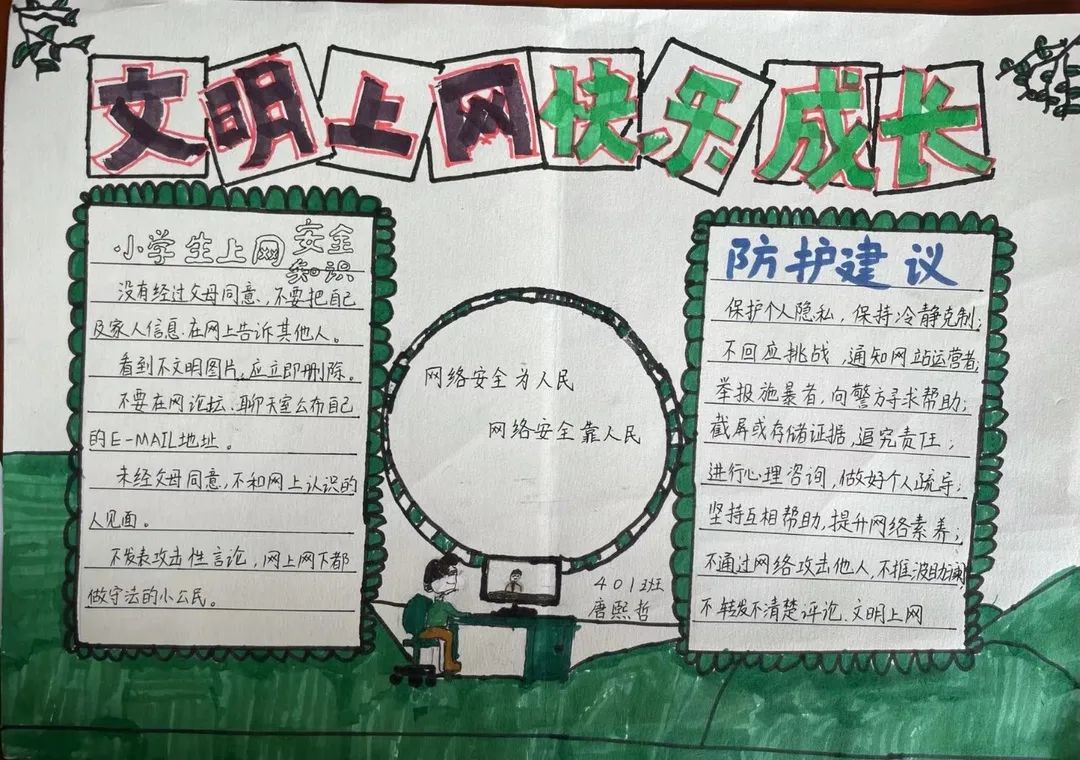 文明上网快乐成长
小学生上网安全
知识
没有经过父母同意,不要把自己
及家人信息在网上告诉其他人。
看到不文明图片,应立即删除。
不要在网论坛、聊天室公布自己
的E-MAIL地址。
未经父母同意,不和网上认识的
人见面。
不发表攻击性言论,网上网下都
做守法的小公民。
网络安全为人民
网络安全靠人民
401班
唐熙哲
防护建议
保护个人隐私,保持冷静克制;
不回应挑战,通知网站运营者;
举报施暴者,向警方寻求帮助;
截屏或存储证据,追究责任;
进行心理咨询,做好个人疏导;
坚持互相帮助,提升网络素养;
不通过网络攻击他人,不推波助澜
不转发不清楚评论、文明上网